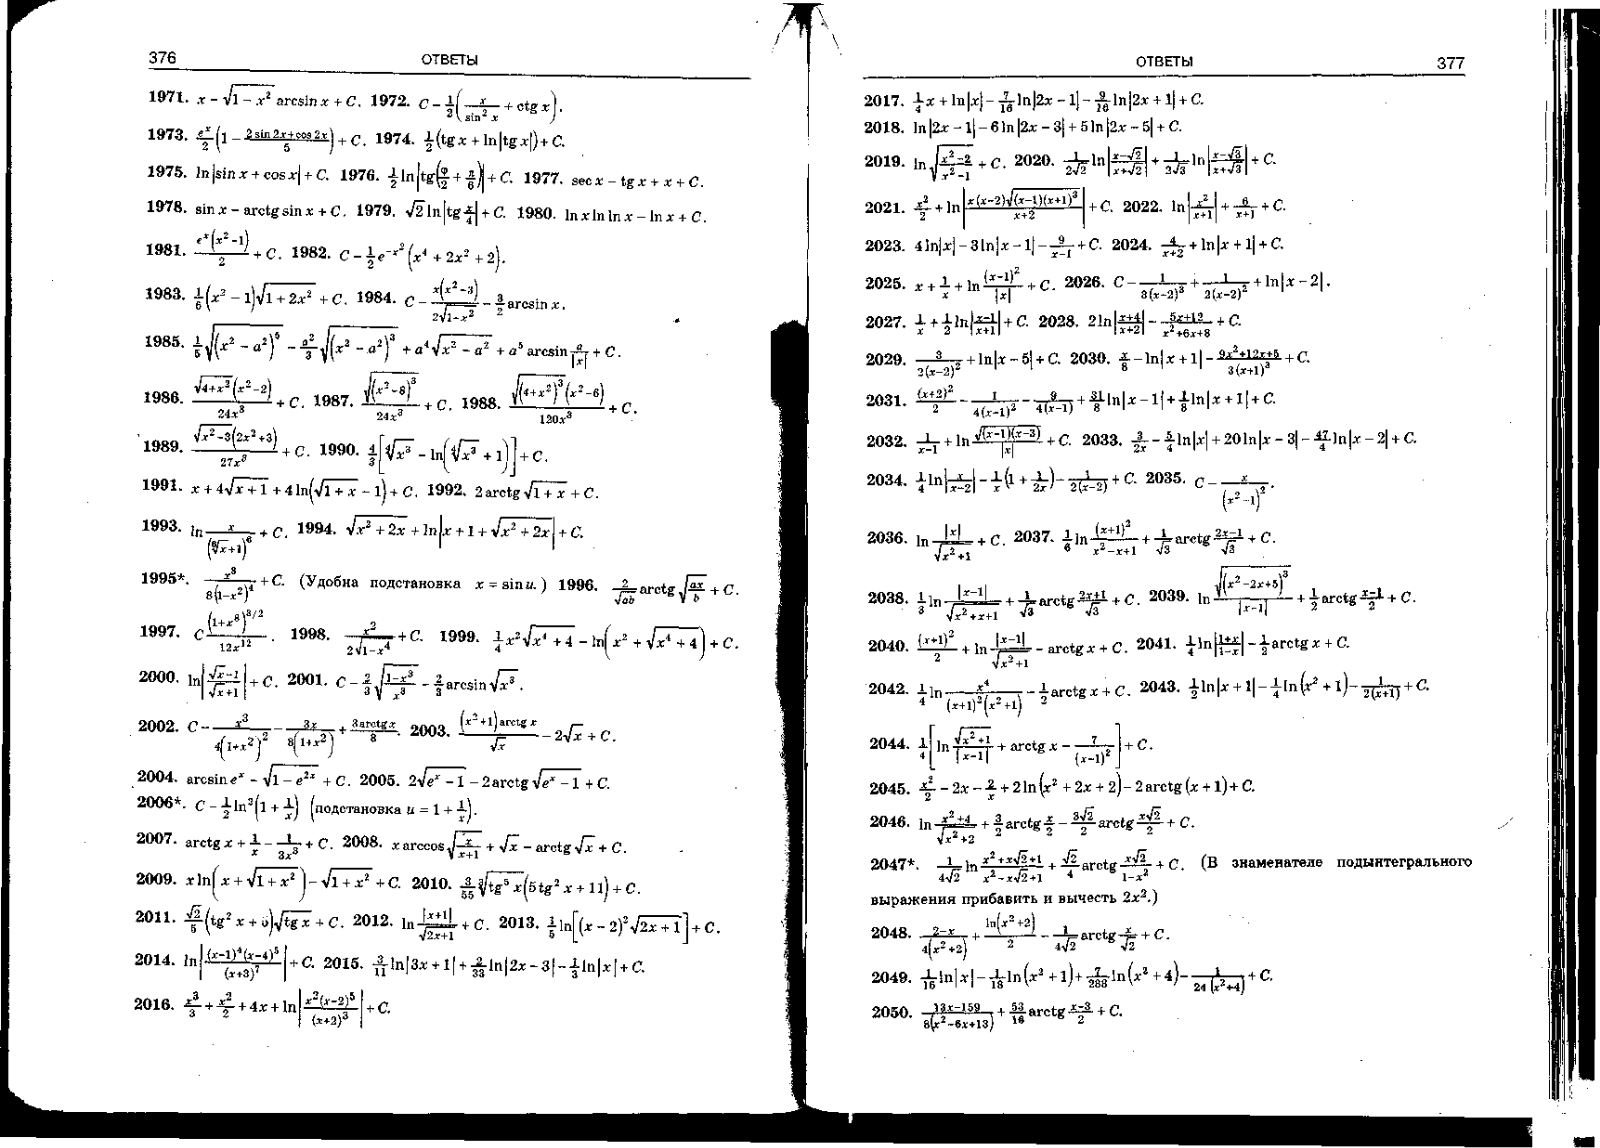 376 ОТВЕТЫ
1971. x − √(1 − x²) arcsin x + C. 1972. C − 1/2 (x/sin² x + ctg x).
1973. eˣ/2 (1 − (2 sin 2x + cos 2x)/5) + C. 1974. 1/2 (tg x + ln|tg x|) + C.
1975. ln|sin x + cos x| + C. 1976. 1/2 ln|tg(φ/2 + π/6)| + C. 1977. sec x − tg x + x + C.
1978. sin x − arctg sin x + C. 1979. √2 ln|tg x/4| + C. 1980. ln x ln ln x − ln x + C.
1981. eˣ²(x²−1)/2 + C. 1982. C − 1/2 e^(−x²) (x⁴ + 2x² + 2).
1983. 1/6 (x² − 1)√(1 + 2x²) + C. 1984. C − x(x²−3)/(2√(1−x²)) − 3/2 arcsin x.
1985. 1/5 √((x² − a²)⁵) − a²/3 √((x² − a²)³) + a⁴√(x² − a²) + a⁵ arcsin a/|x| + C.
1986. √(4+x²)(x²−2)/(24x³) + C. 1987. √((x²−8)³)/(24x³) + C. 1988. √((4+x²)³)(x²−6)/(120x⁵) + C.
1989. √(x²−3)(2x²+3)/(27x³) + C. 1990. 4/3 [⁴√(x³) − ln(⁴√(x³) + 1)] + C.
1991. x + 4√(x + 1) + 4 ln(√(1 + x) − 1) + C. 1992. 2 arctg √(1 + x) + C.
1993. ln x/(⁶√x+1)⁶ + C. 1994. √(x² + 2x) + ln|x + 1 + √(x² + 2x)| + C.
1995*. x⁸/(8(1−x²)⁴) + C. (Удобна подстановка x = sin u.) 1996. 2/√(ab) arctg √(ax/b) + C.
1997. C − (1+x⁸)^(3/2)/(12x¹²). 1998. x²/(2√(1−x⁴)) + C. 1999. 1/4 x²√(x⁴ + 4) − ln(x² + √(x⁴ + 4)) + C.
2000. ln|(√x−1)/(√x+1)| + C. 2001. C − 2/3 √((1−x³)/x³) − 2/3 arcsin √(x³).
2002. C − x³/(4(1+x²)²) − 3x/(8(1+x²)) + 3arctg x/8. 2003. (x²+1)arctg x/√x − 2√x + C.
2004. arcsin eˣ − √(1 − e²ˣ) + C. 2005. 2√(eˣ − 1) − 2 arctg √(eˣ − 1) + C.
2006*. C − 1/2 ln²(1 + 1/x) (подстановка u = 1 + 1/x).
2007. arctg x + 1/x − 1/(3x³) + C. 2008. x arccos √(x/(x+1)) + √x − arctg √x + C.
2009. x ln(x + √(1 + x²)) − √(1 + x²) + C. 2010. 3/55 ³√(tg⁵ x)(5 tg² x + 11) + C.
2011. √2/5 (tg² x + 5)√(tg x) + C. 2012. ln |x+1|/√(2x+1) + C. 2013. 1/5 ln[(x − 2)²√(2x + 1)] + C.
2014. ln|(x−1)⁴(x−4)⁵/(x+3)⁷| + C. 2015. 3/11 ln|3x + 1| + 2/33 ln|2x − 3| − 1/3 ln|x| + C.
2016. x³/3 + x²/2 + 4x + ln|x²(x−2)⁵/(x+2)³| + C.
ОТВЕТЫ 377
2017. 1/4 x + ln|x| − 7/16 ln|2x − 1| − 9/16 ln|2x + 1| + C.
2018. ln|2x − 1| − 6 ln|2x − 3| + 5 ln|2x − 5| + C.
2019. ln √((x²−2)/(x²−1)) + C. 2020. 1/(2√2) ln|(x−√2)/(x+√2)| + 1/(2√3) ln|(x−√3)/(x+√3)| + C.
2021. x²/2 + ln|x(x−2)√((x−1)(x+1)³)/(x+2)| + C. 2022. ln|x²/(x+1)| + 6/(x+1) + C.
2023. 4 ln|x| − 3 ln|x − 1| − 9/(x−1) + C. 2024. 4/(x+2) + ln|x + 1| + C.
2025. x + 1/x + ln (x−1)²/|x| + C. 2026. C − 1/(3(x−2)³) + 1/(2(x−2)²) + ln|x − 2|.
2027. 1/x + 1/2 ln|(x−1)/(x+1)| + C. 2028. 2 ln|(x+4)/(x+2)| − (5x+12)/(x²+6x+8) + C.
2029. 3/(2(x−2)²) + ln|x − 5| + C. 2030. x/8 − ln|x + 1| − (9x²+12x+5)/(3(x+1)³) + C.
2031. (x+2)²/2 − 1/(4(x−1)²) − 9/(4(x−1)) + 31/8 ln|x − 1| + 1/8 ln|x + 1| + C.
2032. 1/(x−1) + ln √((x−1)(x−3))/|x| + C. 2033. 3/(2x) − 5/4 ln|x| + 20 ln|x − 3| − 47/4 ln|x − 2| + C.
2034. 1/4 ln|x/(x−2)| − 1/x (1 + 1/(2x)) − 1/(2(x−2)) + C. 2035. C − x/(x²−1)².
2036. ln |x|/√(x²+1) + C. 2037. 1/6 ln (x+1)²/(x²−x+1) + 1/√3 arctg (2x−1)/√3 + C.
2038. 1/3 ln |x−1|/√(x²+x+1) + 1/√3 arctg (2x+1)/√3 + C. 2039. ln √((x²−2x+5)³)/|x−1| + 1/2 arctg (x−1)/2 + C.
2040. (x+1)²/2 + ln |x−1|/√(x²+1) − arctg x + C. 2041. 1/4 ln|(1+x)/(1−x)| − 1/2 arctg x + C.
2042. 1/4 ln x⁴/((x+1)²(x²+1)) − 1/2 arctg x + C. 2043. 1/2 ln|x + 1| − 1/4 ln(x² + 1) − 1/(2(x+1)) + C.
2044. 1/4 [ln √(x²+1)/|x−1| + arctg x − 7/(x−1)²] + C.
2045. x²/2 − 2x − 2/x + 2 ln(x² + 2x + 2) − 2 arctg (x + 1) + C.
2046. ln (x²+4)/√(x²+2) + 3/2 arctg x/2 − 3√2/2 arctg x√2/2 + C.
2047*. 1/(4√2) ln (x²+x√2+1)/(x²−x√2+1) + √2/4 arctg x√2/(1−x²) + C. (В знаменателе подынтегрального
выражения прибавить и вычесть 2x².)
2048. (2−x)/(4(x²+2)) + ln(x²+2)/2 − 1/(4√2) arctg x/√2 + C.
2049. 1/16 ln|x| − 1/18 ln(x² + 1) + 7/288 ln(x² + 4) − 1/(24(x²+4)) + C.
2050. (13x−159)/(8(x²−6x+13)) + 53/16 arctg (x−3)/2 + C.